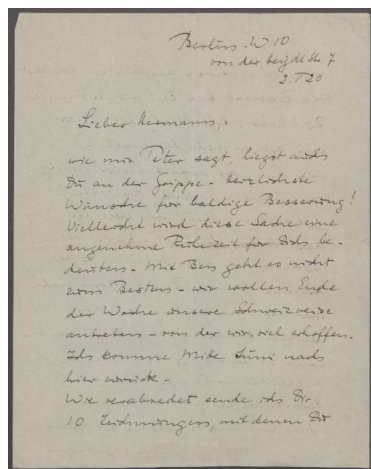 Berlin. W 10
von der Heydt Str. 7
2. V 20
Lieber Hermann,
wie mir Peter sagt, liegst auch
Du an der Grippe - herzlichste
Wünsche für baldige Besserung!
Vielleicht wird diese Sache eine
angenehme Ruhezeit für Dich be-
deuten. Mit geht es nicht
zum Besten - wir wollen Ende
der Woche unsere Schweizreise
antreten - von der wir viel erhoffen.
Ich komme Mitte Juni nach
hier zurück.
Wie verabredet sende ich Dir
10 Zeichnungen, mit denen Du